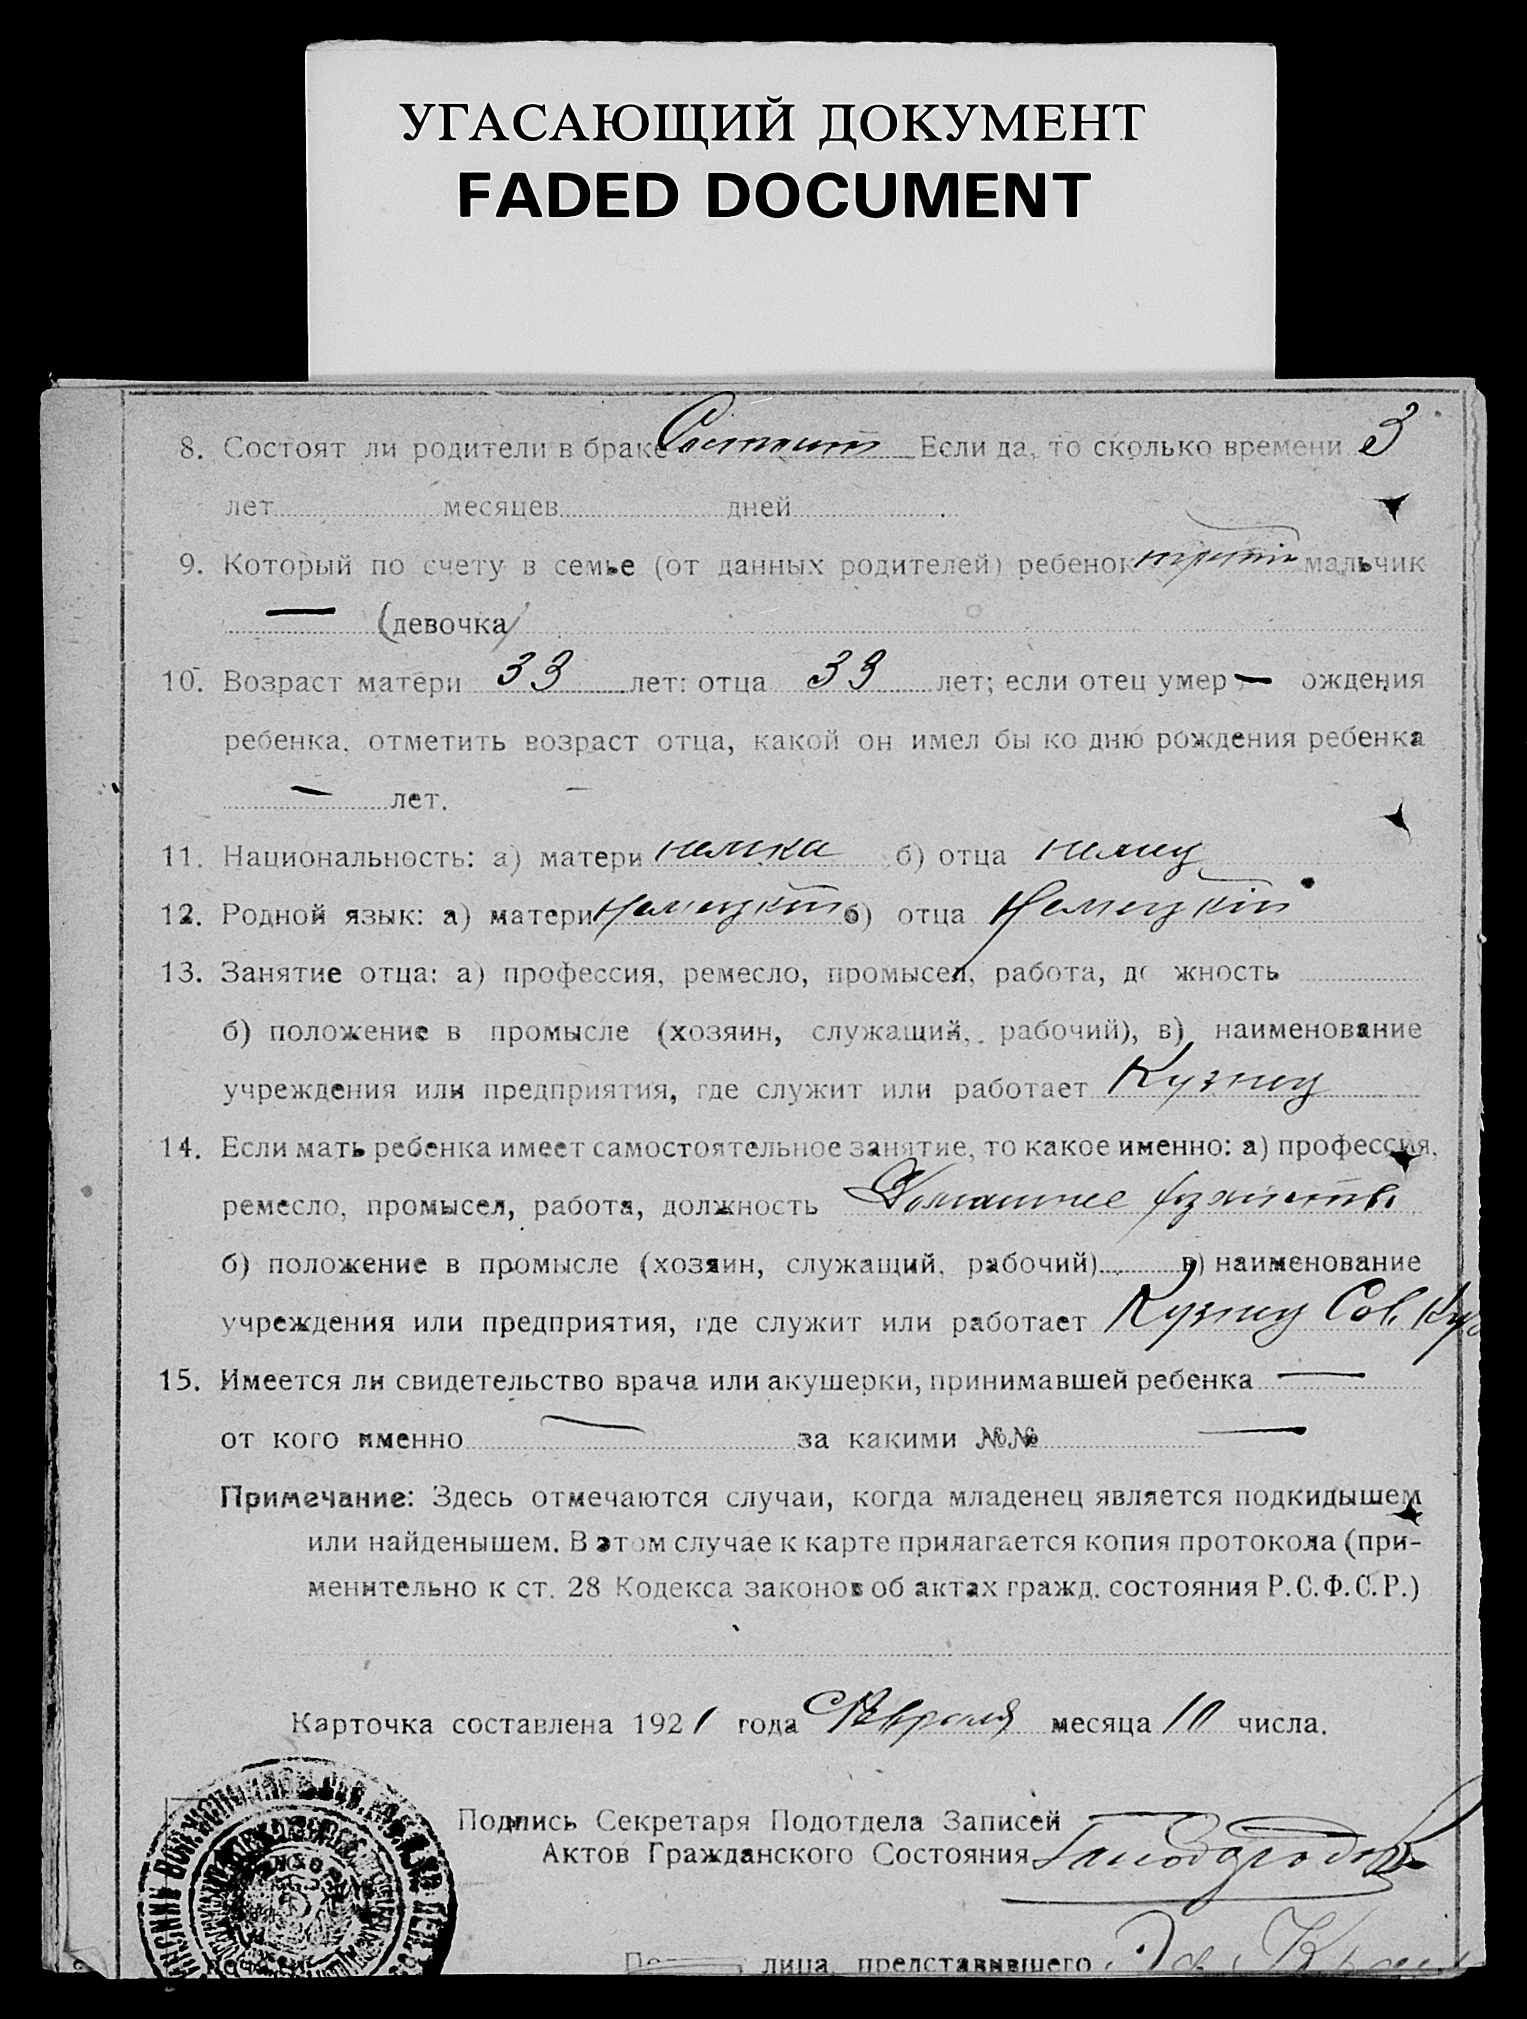 УГАСАЮЩИЙ ДОКУМЕНТ
FADED DOCUMENT
8. Состоят ли родители в браке Состоит Если да, то сколько времени 3
лет месяцев дней
9. Который по счету в семье (от данных родителей) ребенок третий мальчик
— (девочка)
10. Возраст матери 33 лет: отца 33 лет; если отец умер — ождения
ребенка, отметить возраст отца, какой он имел бы ко дню рождения ребенка
— лет.
11. Национальность: а) матери немка б) отца немец
12. Родной язык: а) матери Немецкий б) отца Немецкий
13. Занятие отца: а) профессия, ремесло, промысел, работа, до жность
б) положение в промысле (хозяин, служащий, рабочий), в) наименование
учреждения или предприятия, где служит или работает Кузнец
14. Если мать ребенка имеет самостоятельное занятие, то какое именно: а) профессия,
ремесло, промысел, работа, должность Домашнее
б) положение в промысле (хозяин, служащий, рабочий) в) наименование
учреждения или предприятия, где служит или работает Кузнец Сов.
15. Имеется ли свидетельство врача или акушерки, принимавшей ребенка —
от кого именно — за какими №№ —
Примечание: Здесь отмечаются случаи, когда младенец является подкидышем
или найденышем. В этом случае к карте прилагается копия протокола (при-
менительно к ст. 28 Кодекса законов об актах гражд. состояния Р.С.Ф.С.Р.)
Карточка составлена 1921 года Февраля месяца 10 числа.
Подпись Секретаря Подотдела Записей
Актов Гражданского Состояния
лица, представившего